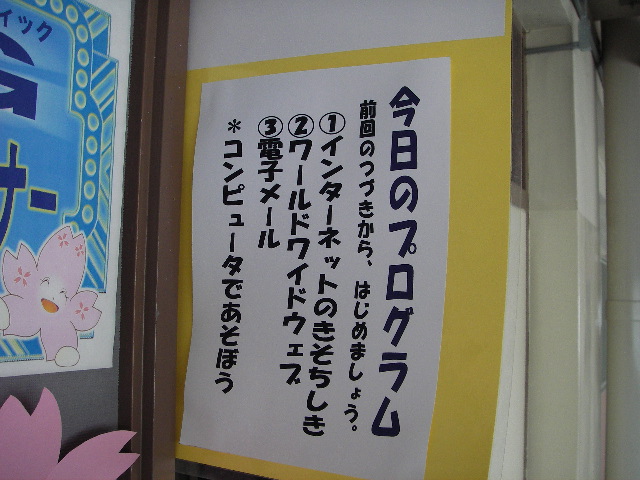 今日のプログラム
前回のつづきから、はじめましょう。
①インターネットのきそちしき
②ワールドワイドウェブ
③電子メール
＊コンピュータであそぼう
ィック